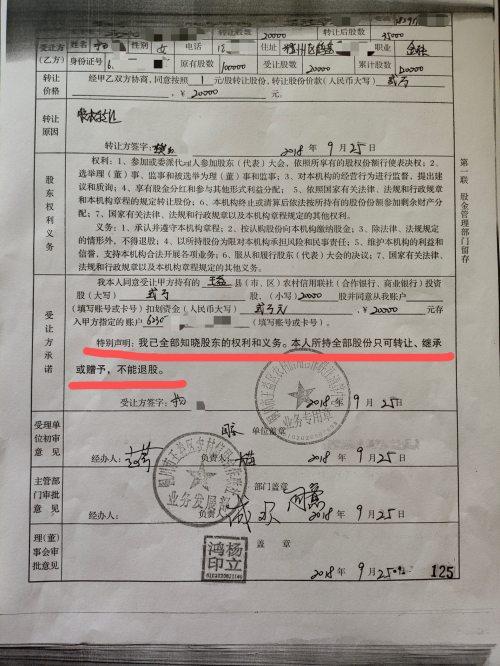 转让股数 20000 转让后股数 35000
受让方 姓名 性别 女 电话 住址 职业
(乙方) 身份证号 6. 原有股数 100000 受让股数 20000 累计股数 120000
转让价格 经甲乙双方协商,同意按照 1 元/股转让股份,转让股份价款(人民币大写) 贰万
,¥ 20000
转让原因
转让方签字: 2018 年 9 月 25 日
股东权利义务
权利:1、参加或委派代理人参加股东(代表)大会,依照所享有的股权份额行使表决权;2、
选举理(董)事、监事和被选举为理(董)事和监事;3、对本机构的经营行为进行监督,提出建
议和质询;4、享有股金分红和参与其他形式利益分配;5、依照国家有关法律、法规、行政规章
和本机构章程的规定转让股份;6、本机构终止或清算后依法按照所持有的股份份额参加剩余财产分
配;7、国家有关法律、法规和行政规章以及本机构章程规定的其他权利。
义务:1、承认并遵守本机构章程;2、按认购股份向本机构缴纳股金;3、除法律、法规规定
的情形外,不得退股;4、以所持股份为限对本机构承担风险和民事责任;5、维护本机构的利益和
信誉,支持本机构合法开展各项业务;6、服从和履行股东(代表)大会的决议;7、国家有关法律、
法规和行政规章以及本机构章程规定的其他义务。
第一联 股金管理部门留存
受让方承诺
我本人同意受让甲方持有的 王益 县(市、区)农村信用联社(合作银行、商业银行)投资
股(大写) 贰万 股、(小写) 20000 股并同意从我账户
(填写账号或卡号)扣划资金(人民币大写) 贰万元 ,¥ 20000 元存
入甲方指定的账户 6230 (填写账号或卡号)。
特别声明:我已全部知晓股东的权利和义务。本人所持全部股份只可转让、继承
或赠予,不能退股。
受让方签字: 2018 年 9 月 25 日
业务专用章
受理单位初审意见
同意 单位盖章
经办人: 负责人: 2018 年 9 月 25 日
业务发展部
主管部门审批意见
部门盖章
同意
经办人: 负责 2018 年 9 月 25 日
理(董)事会审批意见
盖 章
鸿杨
印立
2018 年 9 月 25 日
125